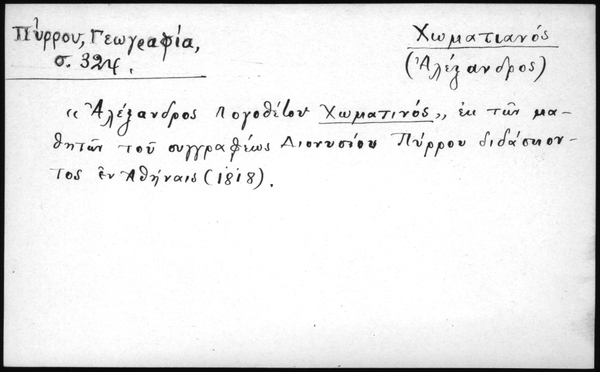 Πύρρου, Γεωγραφία,
σ. 324.
Χωματιανός
(Ἀλέξανδρος)
«Ἀλέξανδρος Λογοθέτου Χωματινός», ἐκ τῶν μα-
θητῶν τοῦ συγγραφέως Διονυσίου Πύρρου διδάσκον-
τος ἐν Ἀθήναις (1818).